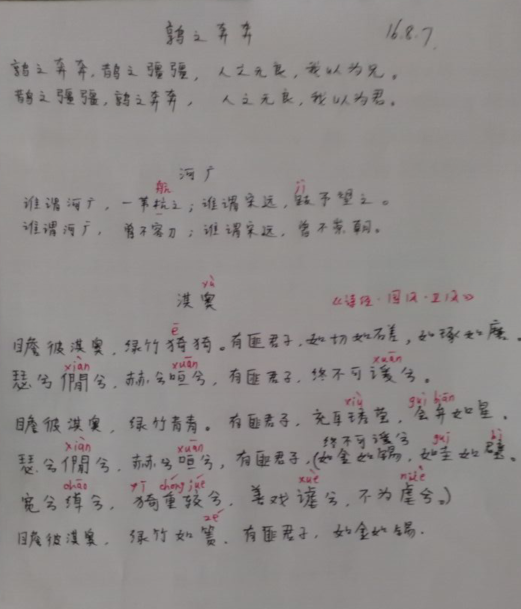 鹑之奔奔 16.8.7
鹑之奔奔,鹊之彊彊, 人之无良,我以为兄。
鹊之彊彊,鹑之奔奔, 人之无良,我以为君。
河广
háng jī
谁谓河广,一苇杭之;谁谓宋远,跂予望之。
谁谓河广,曾不容刀;谁谓宋远,曾不崇朝。
yù
淇奥 《诗经·国风·卫风》
ē
瞻彼淇奥,绿竹猗猗。有匪君子,如切如磋,如琢如磨。
xiàn xuān xuān
瑟兮僩兮,赫兮咺兮,有匪君子,终不可谖兮。
xiù guì biàn
瞻彼淇奥,绿竹青青。有匪君子,充耳琇莹,会弁如星。
终不可谖兮
xiàn xuān guī bì
瑟兮僩兮,赫兮咺兮,有匪君子,(如金如锡,如圭如璧。
chāo yǐ chóng jué xuè nüè
宽兮绰兮,猗重较兮,善戏谑兮,不为虐兮。)
zé
瞻彼淇奥,绿竹如箦,有匪君子,如金如锡.